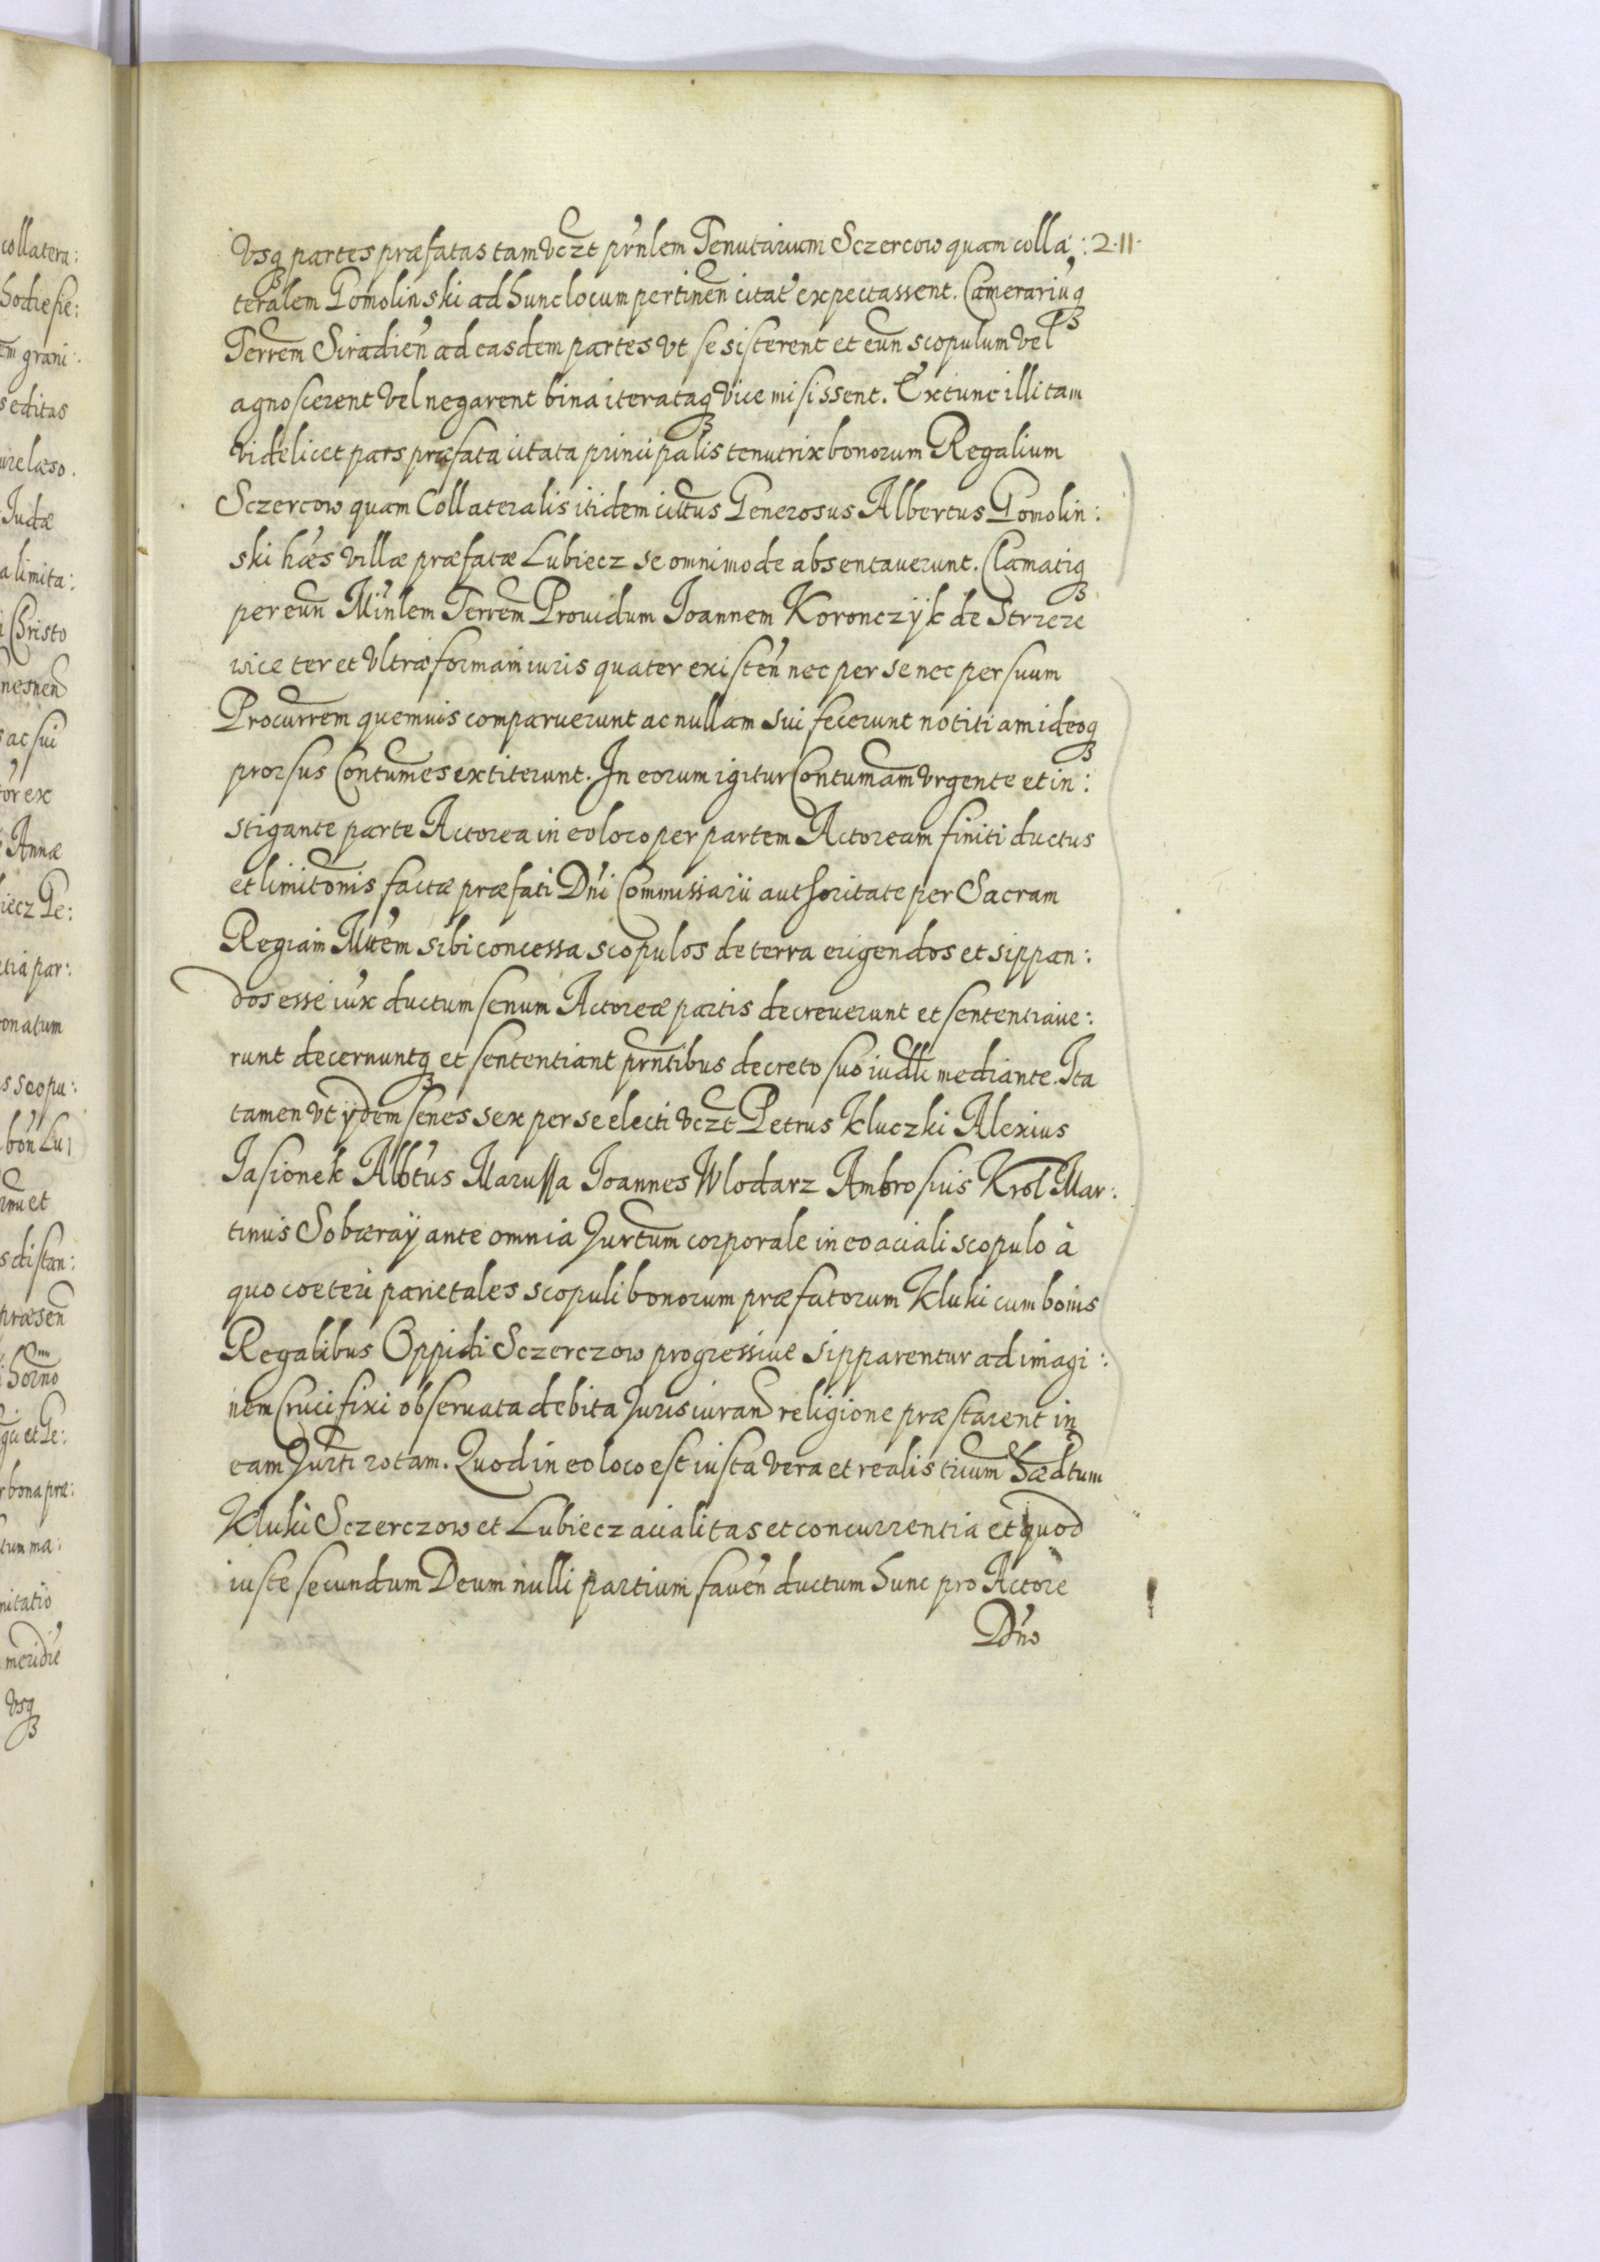 Vsq partes præfatas tam vczt prnlem Tenutarium Sczercow quam colla: 2.11.
teralem Gomolinski ad hunc locum pertinen citat expectassent. Camerariuq
Terrem Siradien ad easdem partes vt se sisterent et eun scopulum vel
agnoscerent vel negarent bina iterataq vice misissent. Extunc illi tam
videlicet pars præfata citata principalis tenutrix bonorum Regalium
Sczercow quam Collateralis itidem cittus Generosus Albertus Gomolin:
ski hæs villæ præfatæ Lubiecz se omnimode absentauerunt. Clamatiq
per eun Minlem Terrem Prouidum Ioannem Koronczÿk de Strzeze
wice ter et vltra formam iuris quater existen nec per se nec per suum
Procurrem quemuis comparuerunt ac nullam sui fecerunt notitiam ideoq
prorsus Contumes extiterunt. In eorum igitur Contumam vrgente et in:
stigante parte Actorea in eo loco per partem Actoream finiti ductus
et limitonis factæ præfati Dni Commissarii authoritate per Sacram
Regiam Mttem sibi concessa scopulos de terra erigendos et sippan:
dos esse iux ductum senum Actoreæ partis decreuerunt et sententiaue:
runt decernuntq et sententiant prntibus decreto suo iudli mediante. Ita
tamen vt ÿdem senes sex per se electi vczt Petrus Kluczki Alexius
Iasionek Albtus Marussa Ioannes Wlodarz Ambrosius Krol Mar:
tinus Sobæraÿ ante omnia Jurtum corporale in eo aciali scopulo à
quo coeteri parietales scopuli bonorum præfatorum Kluki cum bonis
Regalibus Oppidi Sczerczow progressiue sipparentur ad imagi:
nem Crucifixi obseruata debita Jurisiuran religione præstarent in
eam Jurti rotam. Quod in eo loco est iusta vera et realis trium hædtum
Kluki Sczerczow et Lubiecz acialitas et concurrentia et quod
iuste secundum Deum nulli partium fauen ductum hunc pro Actore
Dno